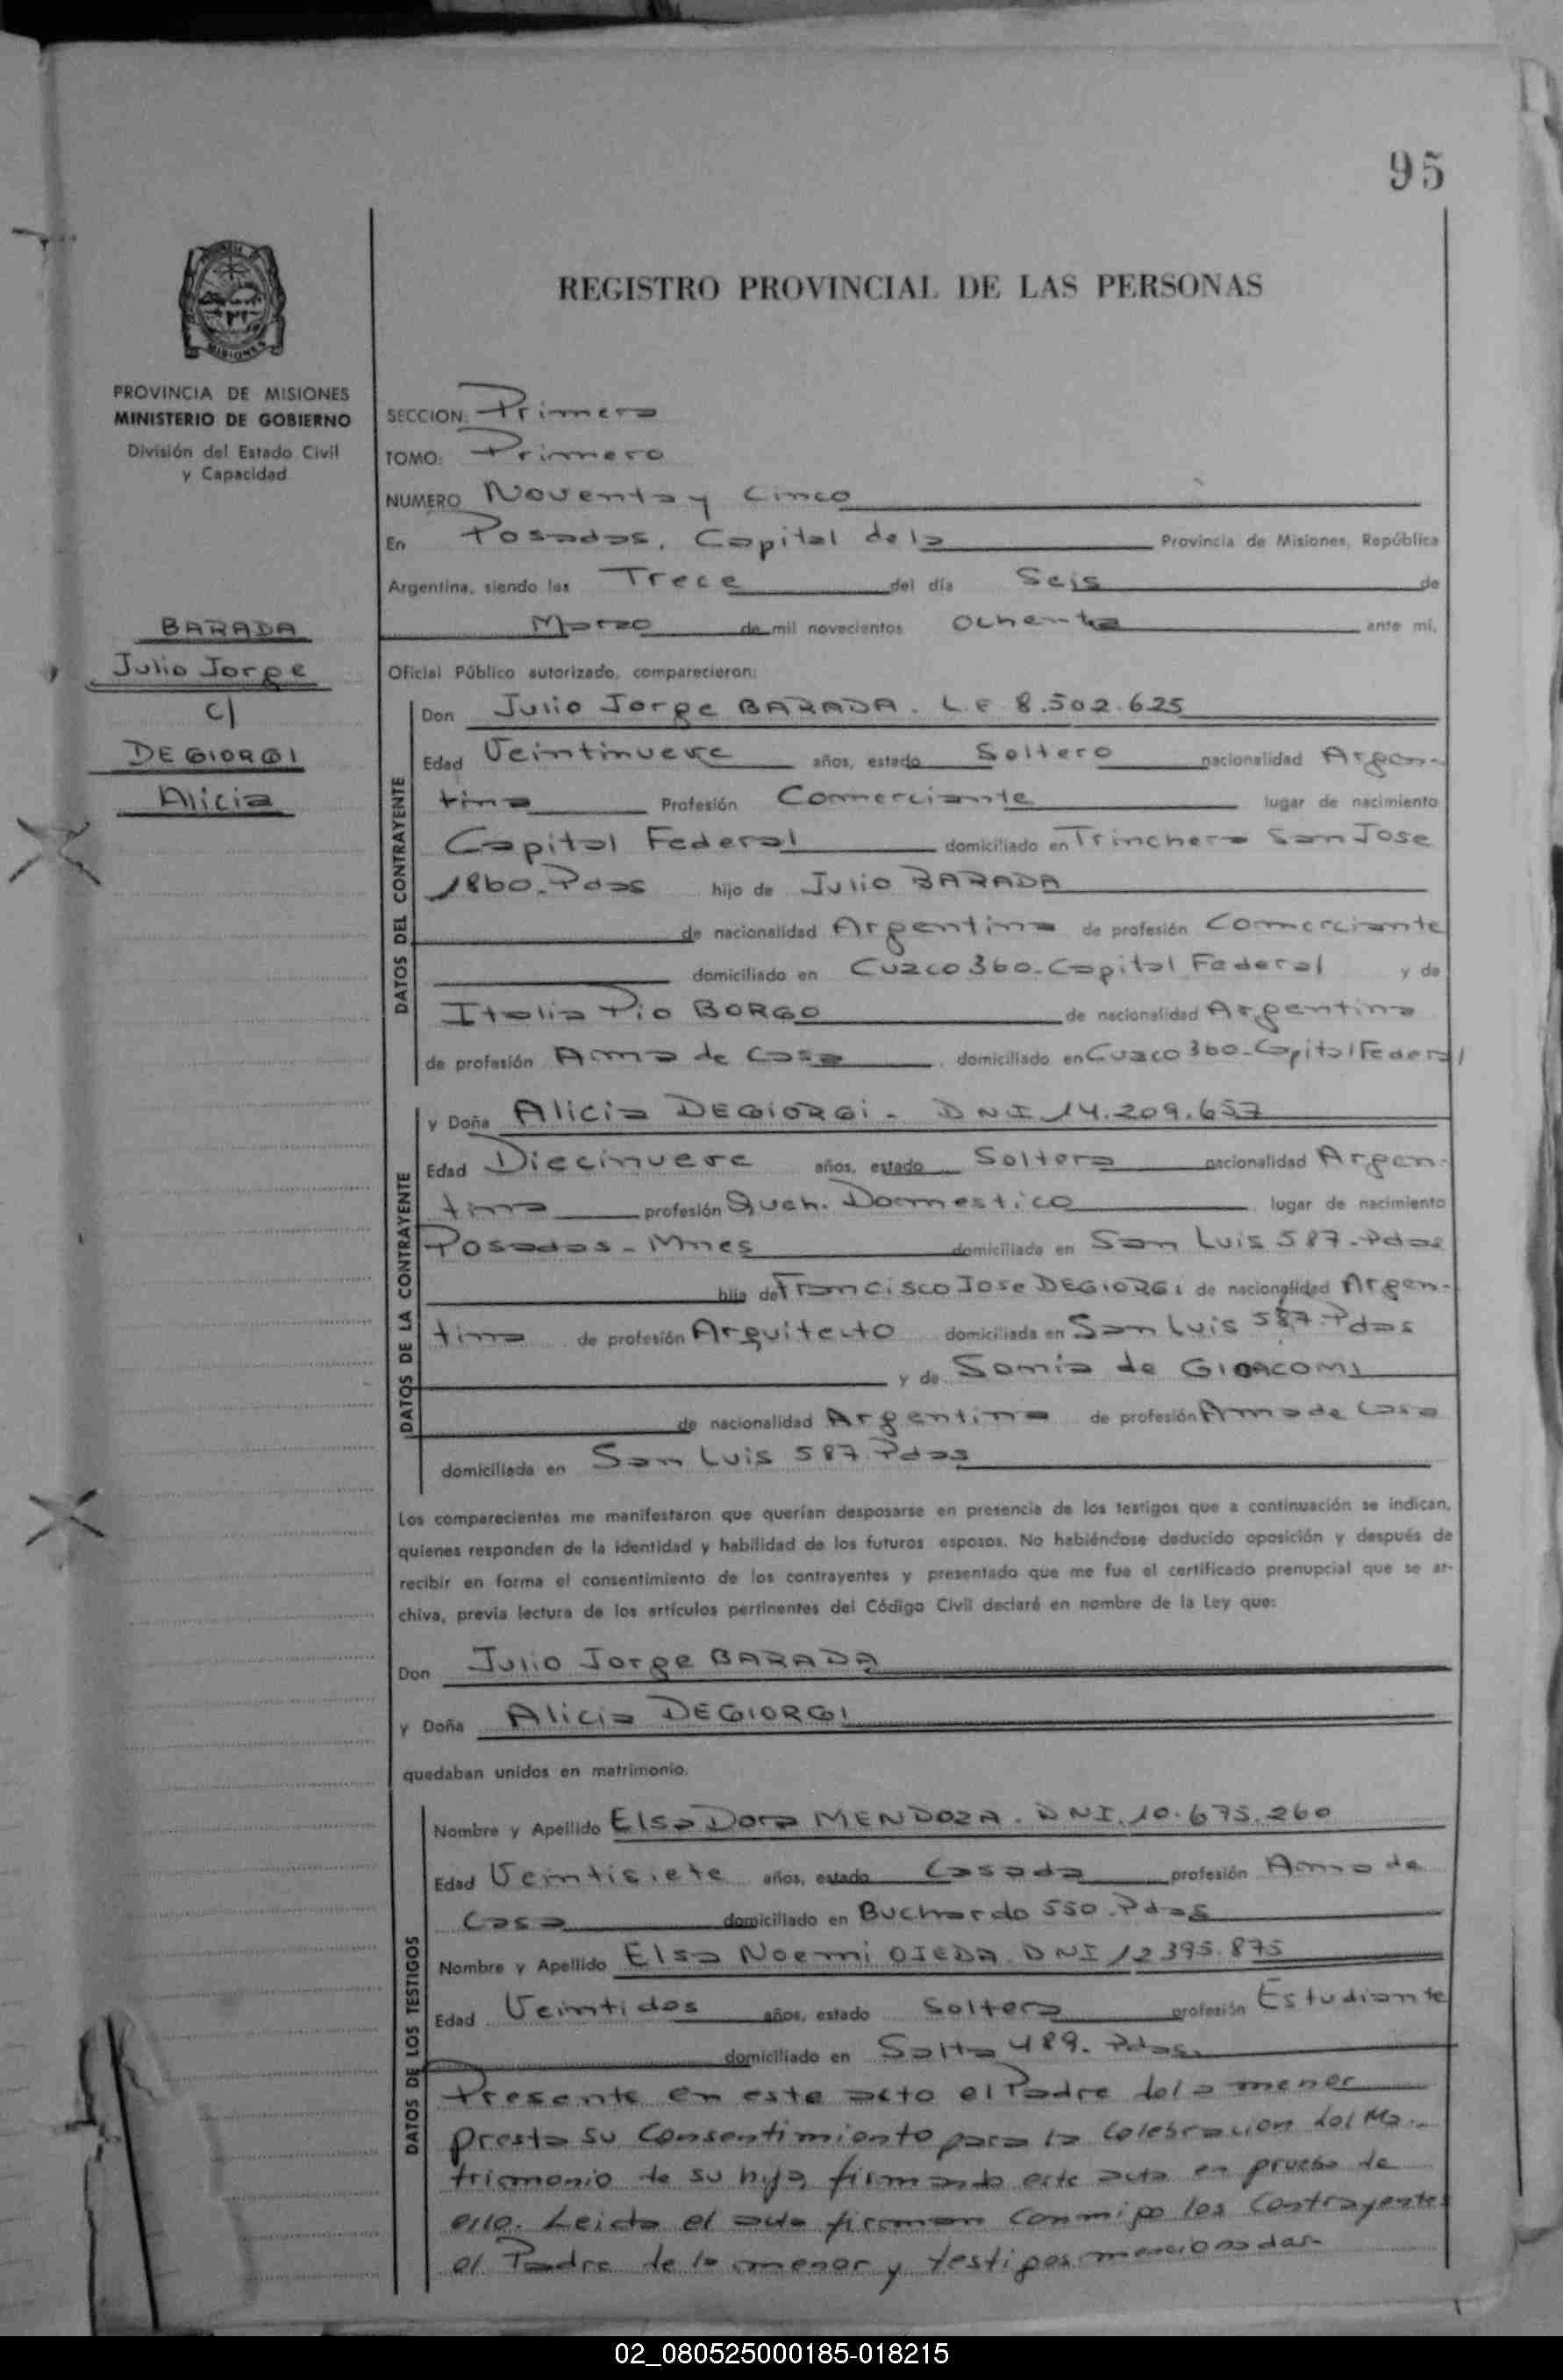 95
REGISTRO PROVINCIAL DE LAS PERSONAS
MISIONES
PROVINCIA DE MISIONES
MINISTERIO DE GOBIERNO
División del Estado Civil
y Capacidad
BARADA
Julio Jorge
c/
DEGIORGI
Alicia
SECCION: Primera
TOMO: Primero
NUMERO Noventa y Cinco
En Posadas, Capital de la Provincia de Misiones, República
Argentina, siendo las Trece del día Seis de
Marzo de mil novecientos Ochenta ante mi,
Oficial Público autorizado, comparecieron:
DATOS DEL CONTRAYENTE
Don Julio Jorge BARADA. L.E 8.502.625
Edad Veintinueve años, estado Soltero nacionalidad Argen-
tina Profesión Comerciante lugar de nacimiento
Capital Federal domiciliado en Trinchera San Jose
1860. Pdas hijo de Julio BARADA
de nacionalidad Argentina de profesión Comerciante
domiciliado en Cuzco 360. Capital Federal y de
Italia Pio BORGO de nacionalidad Argentina
de profesión Ama de Casa domiciliado en Cuzco 360-Capital Federal
DATOS DE LA CONTRAYENTE
y Doña Alicia DEGIORGI - DNI 14.209.657
Edad Diecinueve años, estado Soltera nacionalidad Argen-
tina profesión Queh. Domestico lugar de nacimiento
Posadas - Mnes domiciliada en San Luis 587. Pdas
hija de Francisco Jose DEGIORGI de nacionalidad Argen-
tina de profesión Arquitecto domiciliada en San Luis 587. Pdas
y de Sonia de GIOACOMI
de nacionalidad Argentina de profesión Ama de Casa
domiciliada en San Luis 587. Pdas
Los comparecientes me manifestaron que querían desposarse en presencia de los testigos que a continuación se indican,
quienes responden de la identidad y habilidad de los futuros esposos. No habiéndose deducido oposición y después de
recibir en forma el consentimiento de los contrayentes y presentado que me fue el certificado prenupcial que se ar-
chiva, previa lectura de los artículos pertinentes del Código Civil declaré en nombre de la Ley que:
Don Julio Jorge BARADA
y Doña Alicia DEGIORGI
quedaban unidos en matrimonio.
DATOS DE LOS TESTIGOS
Nombre y Apellido Elsa Dora MENDOZA. DNI. 10.675.260
Edad Veintisiete años, estado Casada profesión Ama de
Casa domiciliado en Buchardo 550. Pdas
Nombre y Apellido Elsa Noemi OJEDA. DNI 12395.875
Edad Veintidos años, estado Soltera profesión Estudiante
domiciliado en Salta 489. Pdas.
Presente en este acto el Padre de la menor
presta su consentimiento para la celebracion del Ma-
trimonio de su hija, firmando este acta en prueba de
ello. Leida el acta firman conmigo los Contrayentes
el Padre de la menor y testigos mencionadas.
02_080525000185-018215